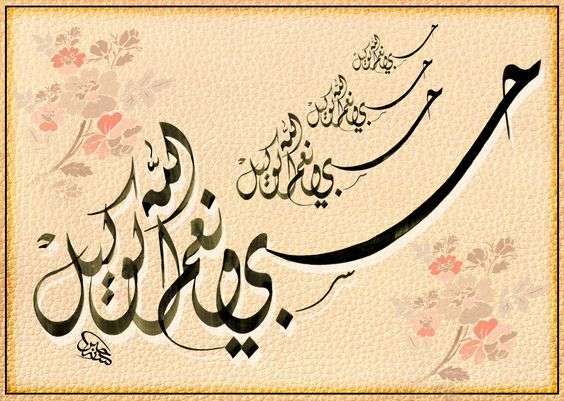 حسبي الله ونعم الوكيل
حسبي الله ونعم الوكيل
حسبي الله ونعم الوكيل
حسبي الله ونعم الوكيل